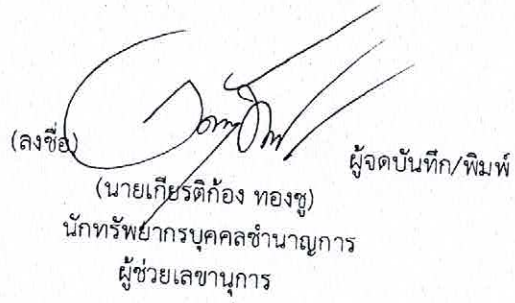 (ลงชื่อ) ผู้จดบันทึก/พิมพ์
(นายเกียรติก้อง ทองชู)
นักทรัพยากรบุคคลชำนาญการ
ผู้ช่วยเลขานุการ